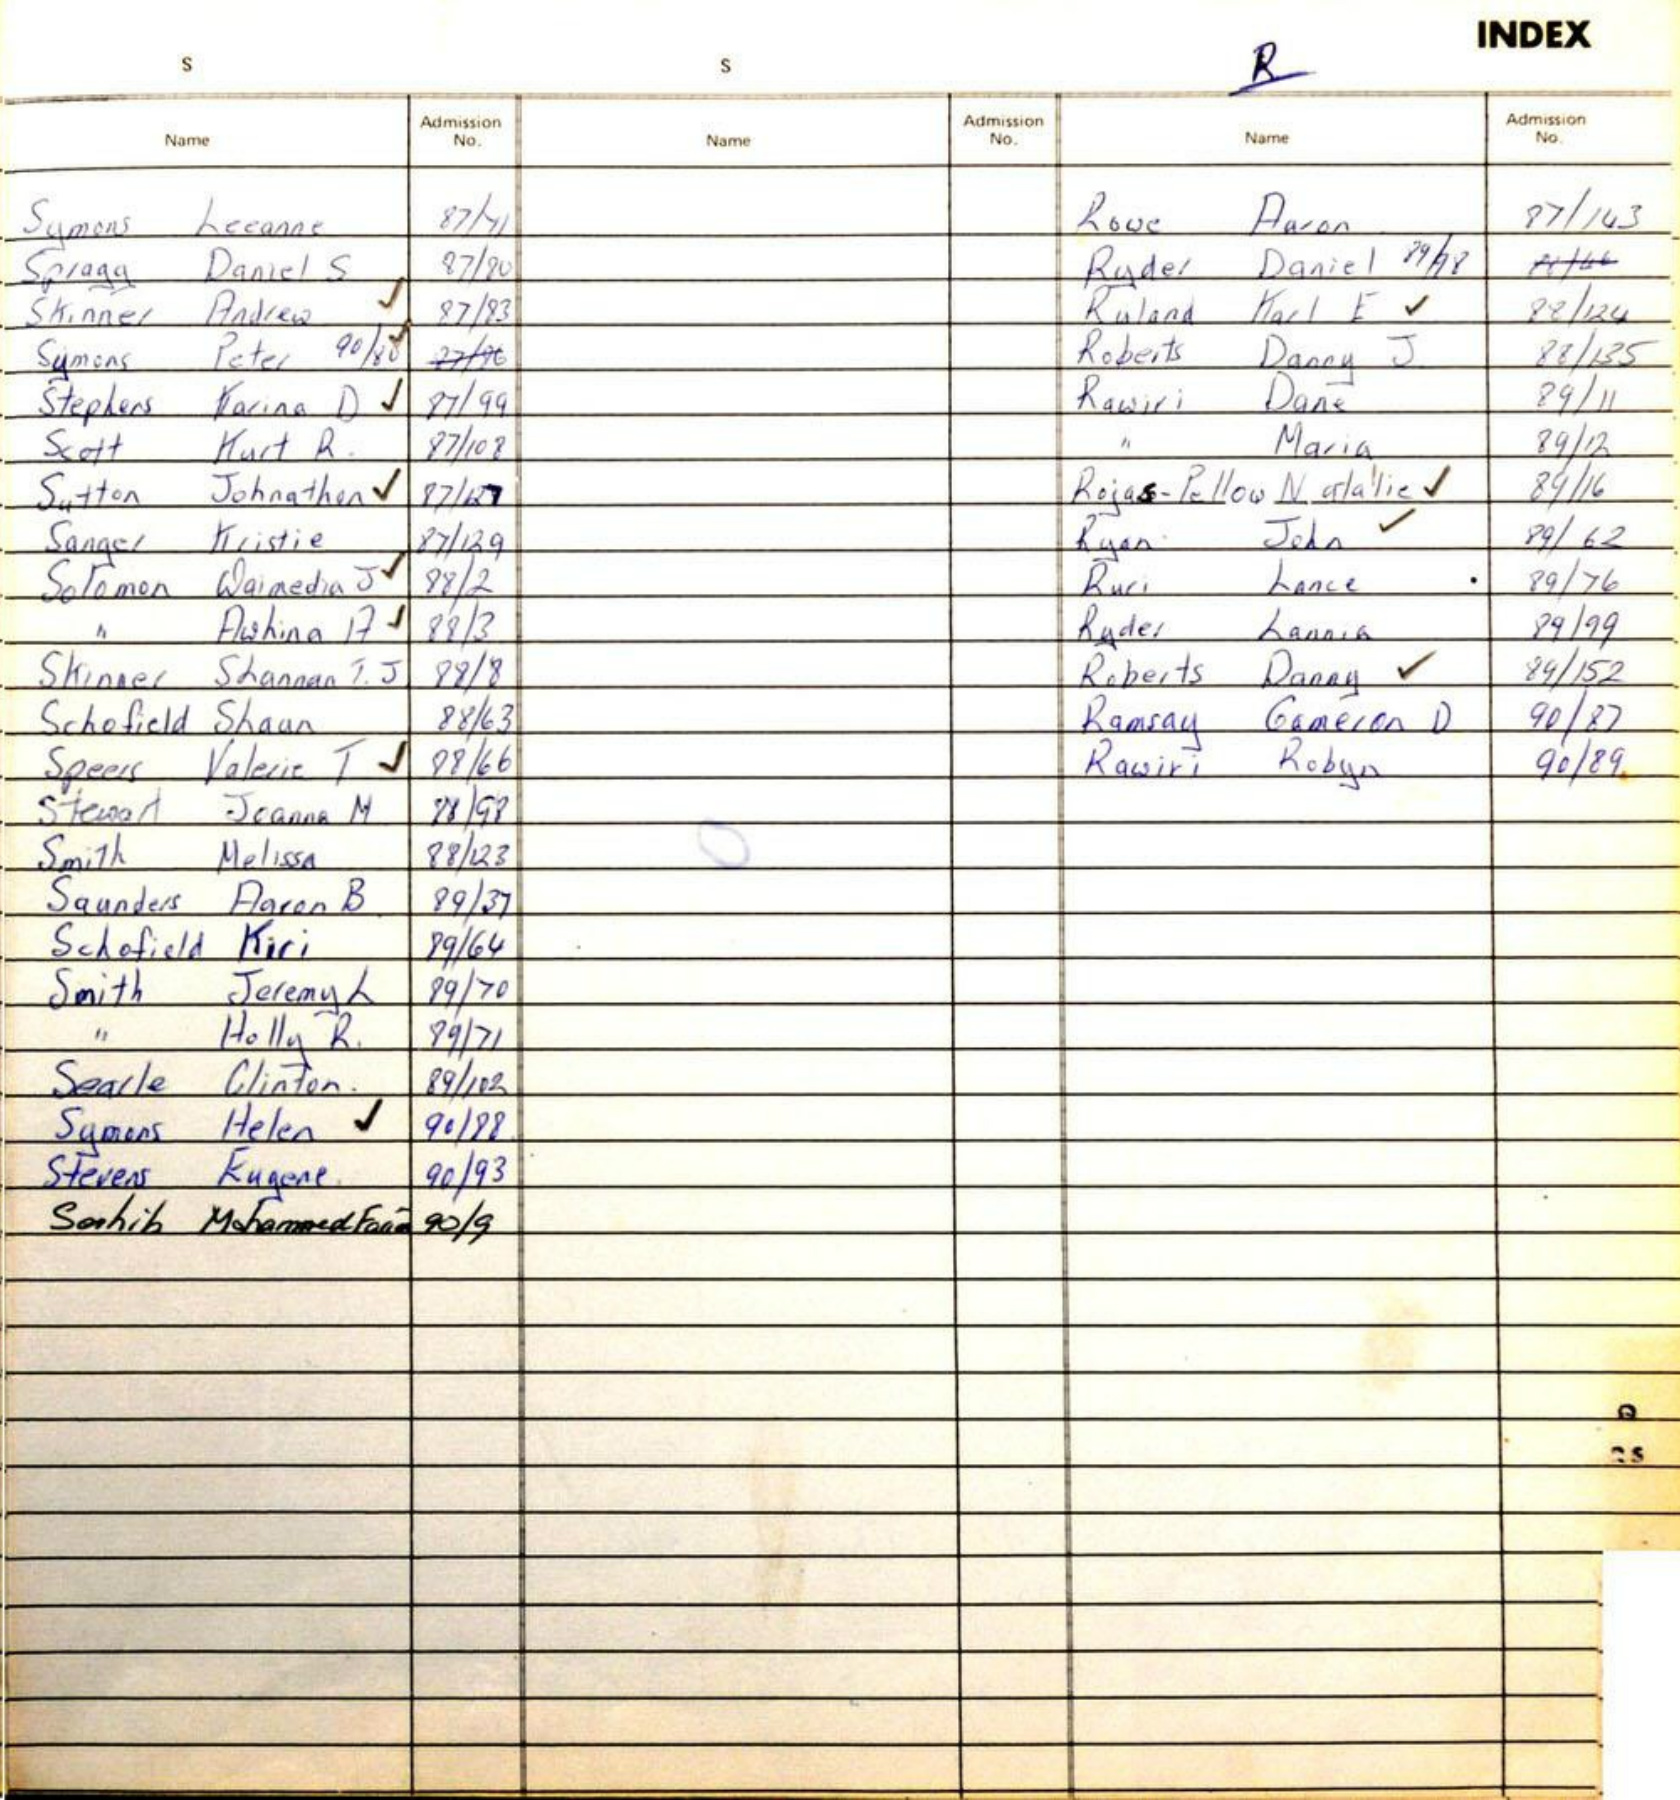 INDEX
S S R
Name Admission No. Name Admission No. Name Admission No.
Symons Leeanne 87/41
Spragg Daniel S 87/80
Skinner Andrew ✓ 87/83
Symons Peter 90/88 ✓ 87/96
Stephens Karina D ✓ 87/99
Scott Kurt R. 87/108
Sutton Johnathon ✓ 87/127
Sanger Kristie 87/129
Solomon Waimedia J ✓ 88/2
" Awhina A ✓ 88/3
Skinner Shannan T. J 88/8
Schofield Shaun 88/63
Speers Valerie T ✓ 88/66
Stewart Joanna M 88/98
Smith Melissa 88/123
Saunders Aaron B 89/37
Schofield Kiri 89/64
Smith Jeremy L 89/70
" Holly R. 89/71
Searle Clinton. 89/102
Symons Helen ✓ 90/88
Stevens Eugene 90/93
Mohammed 90/9
Rowe Aaron 87/143
Ryder Daniel 89/98
Ryland Karl E ✓ 88/124
Roberts Danny J 88/135
Rawiri Dane 89/11
" Maria 89/12
Rojas-Pellow Natalie ✓ 89/16
Ryan John ✓ 89/62
Ruri Lance 89/76
Ryder Lannia 89/99
Roberts Danny ✓ 89/152
Ramsay Cameron D 90/87
Rawiri Robyn 90/89
Q
S